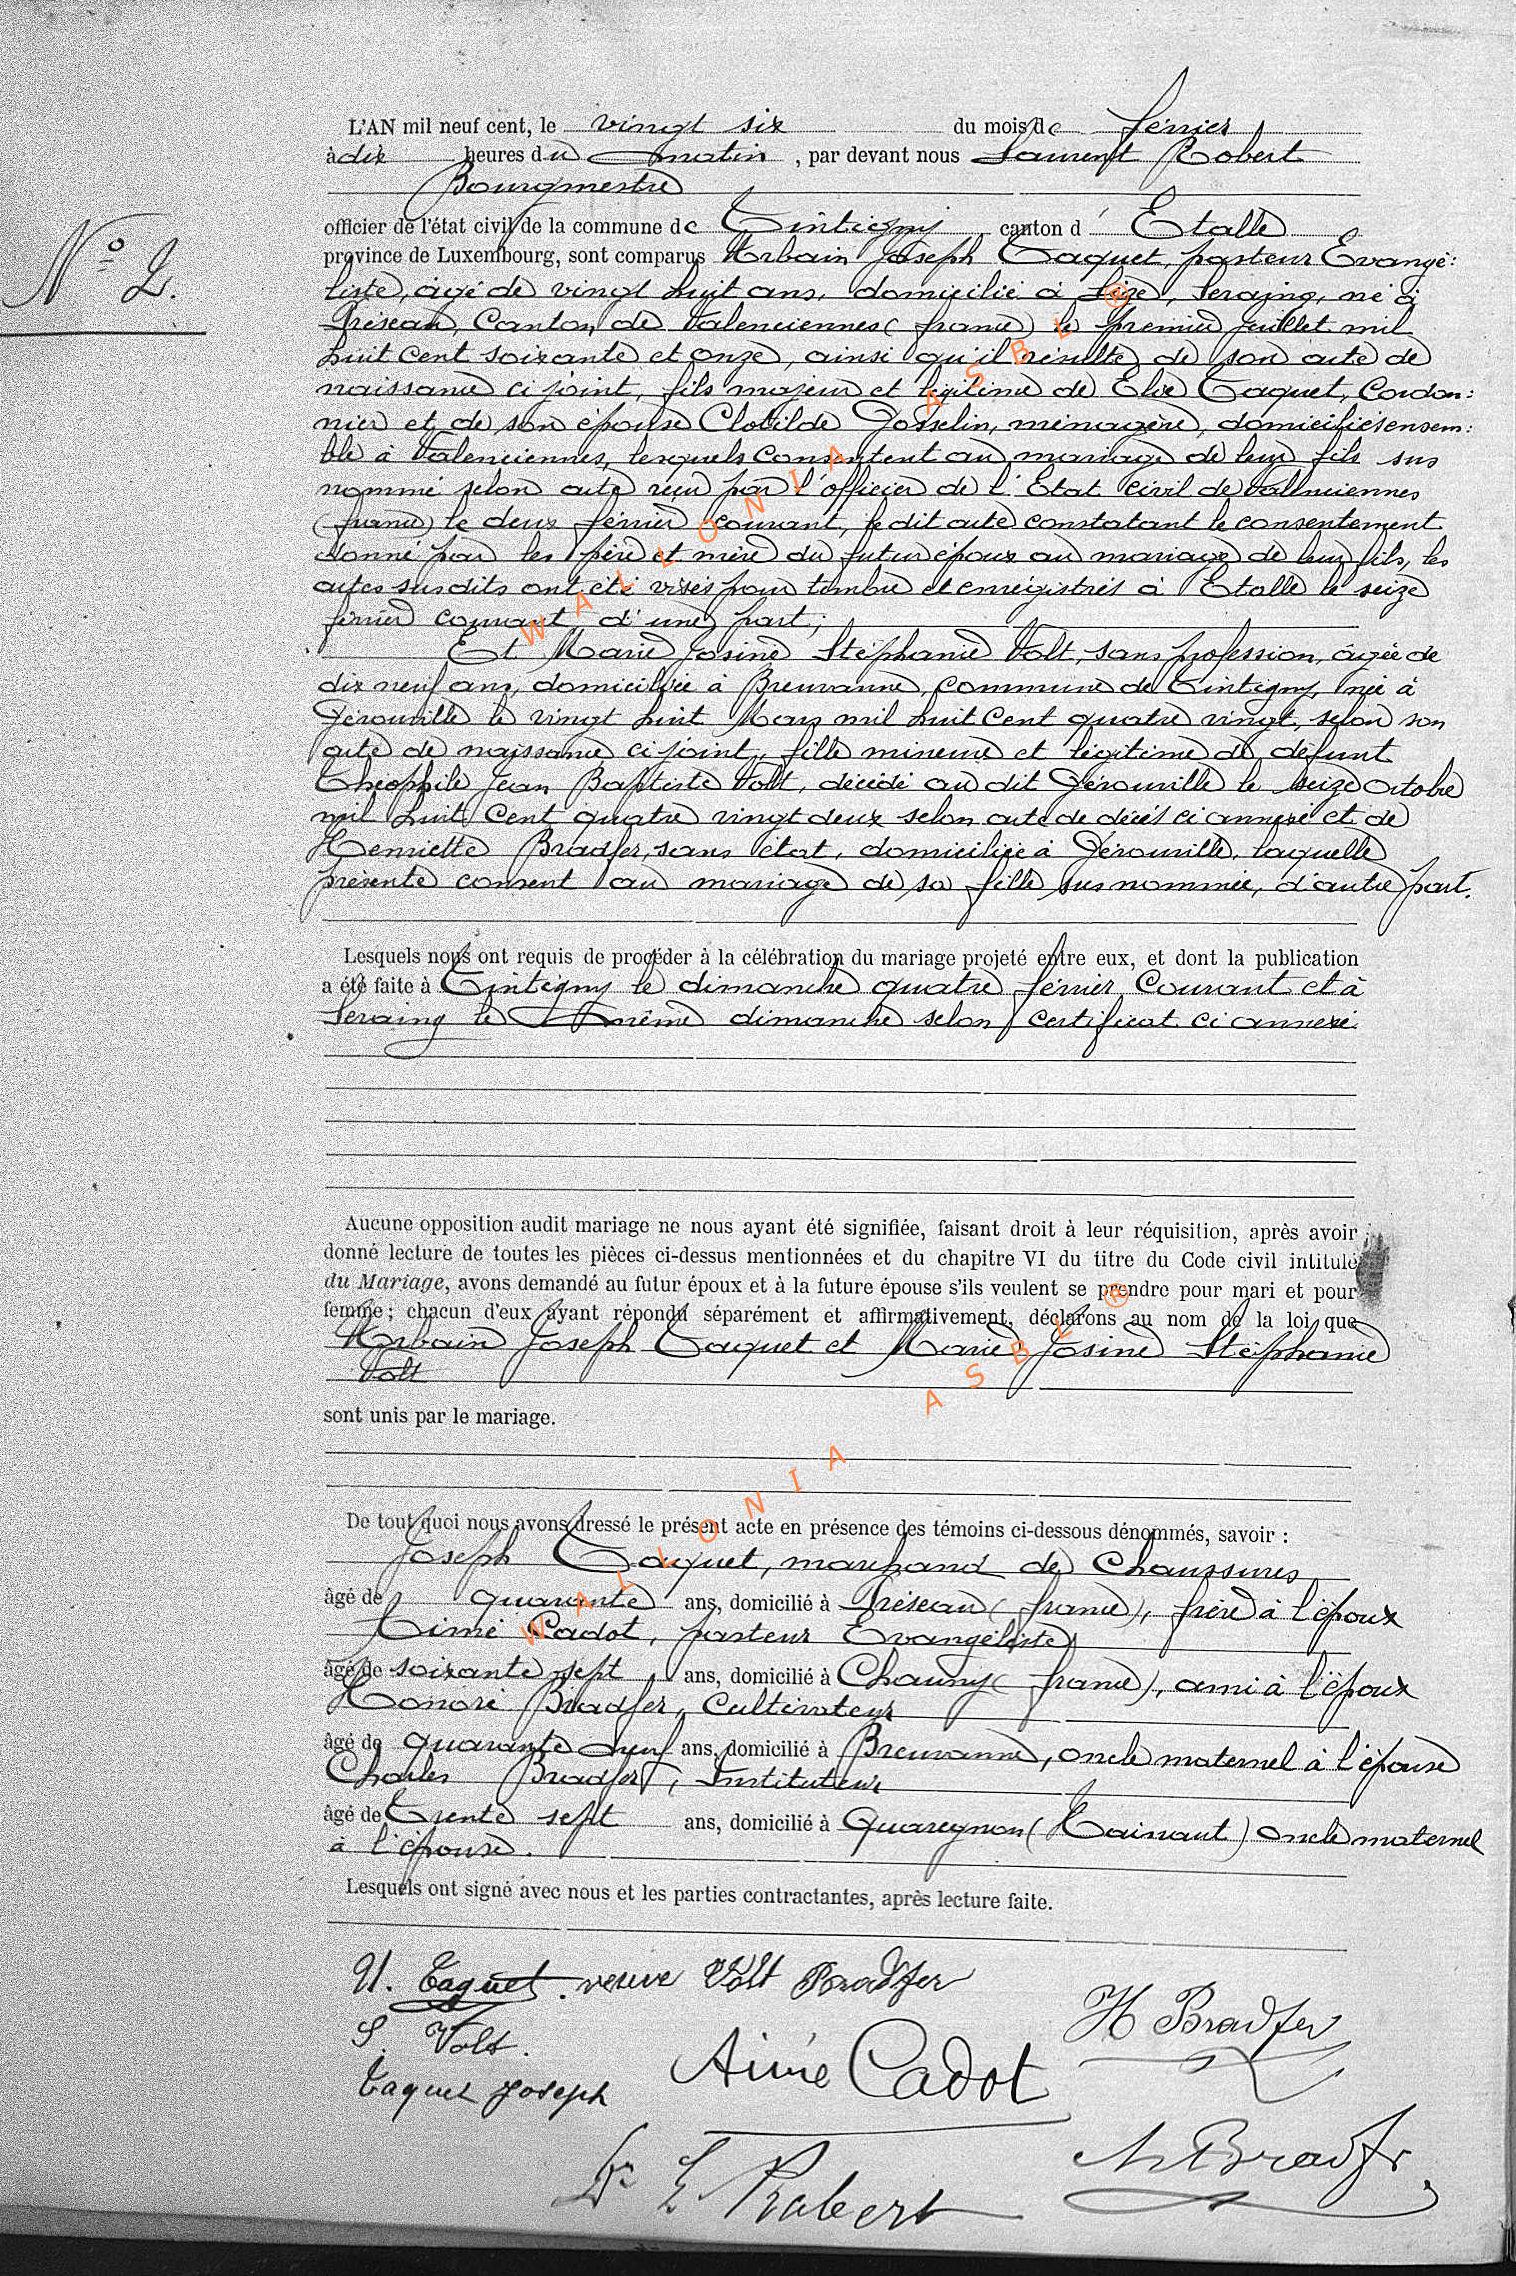 L'AN mil neuf cent, le vingt six du mois de février
à dix heures du matin, par devant nous Laurent Robert
Bourgmestre
officier de l'état civil de la commune de Tintigny canton d'Etalle
N° 2.
province de Luxembourg, sont comparus Urbain Joseph Taquet, pasteur Evangé:
liste, âgé de vingt huit ans, domicilié à Lize, Seraing, né à
Préseau, Canton de Valenciennes (france) le premier Juillet mil
huit cent soixante et onze, ainsi qu'il résulte de son acte de
naissance ci joint, fils majeur et légitime de Elie Taquet, Cordon:
nier et de son épouse Clotilde Josselin, ménagère, domiciliés ensem:
ble à Valenciennes, lesquels consentent au mariage de leur fils sus
nommé selon acte reçu par l'officier de l'Etat civil de Valenciennes
(france) le deux février courant, le dit acte constatant le consentement
donné par les père et mère du futur époux au mariage de leur fils, les
actes susdits ont été visés pour timbre et enregistrés à Etalle le seize
février courant, d'une part;
Et Marie Josine Stéphanie Volt, sans profession, âgée de
dix neuf ans, domiciliée à Breuvanne, commune de Tintigny, née à
Gérouville le vingt huit Mars mil huit cent quatre vingt, selon son
acte de naissance ci joint, fille mineure et légitime de défunt
Théophile Jean Baptiste Volt, décédé au dit Gérouville le seize octobre
mil huit cent quatre vingt deux selon acte de décès ci annexé et de
Henriette Bradfer, sans état, domiciliée à Gérouville, laquelle
présente consent au mariage de sa fille sus nommée, d'autre part.
Lesquels nous ont requis de procéder à la célébration du mariage projeté entre eux, et dont la publication
a été faite à Tintigny le dimanche quatre février Courant et à
Seraing le même dimanche selon certificat ci annexé.
Aucune opposition audit mariage ne nous ayant été signifiée, faisant droit à leur réquisition, après avoir
donné lecture de toutes les pièces ci-dessus mentionnées et du chapitre VI du titre du Code civil intitulé
du Mariage, avons demandé au futur époux et à la future épouse s'ils veulent se prendre pour mari et pour
femme; chacun d'eux ayant répondu séparément et affirmativement, déclarons au nom de la loi que
Urbain Joseph Taquet et Marie Josine Stéphanie
Volt
sont unis par le mariage.
De tout quoi nous avons dressé le présent acte en présence des témoins ci-dessous dénommés, savoir :
Joseph Taquet, marchand de Chaussures
âgé de quarante ans, domicilié à Préseau (france), frère à l'époux
Aimé Cadot, pasteur Evangéliste
âgé de soixante sept ans, domicilié à Chauny (france), ami à l'époux
Honoré Bradfer, Cultivateur
âgé de quarante neuf ans, domicilié à Breuvanne, oncle maternel à l'épouse
Charles Bradfer, Instituteur
âgé de trente sept ans, domicilié à Quaregnon (Hainaut) oncle maternel
à l'épouse.
Lesquels ont signé avec nous et les parties contractantes, après lecture faite.
U. Taquet. veuve Volt Bradfer
H Bradfer
S. Volt.
Aimé Cadot
Taquet Joseph
Bradfer
L. Robert
WALLONIA ASBL ®
WALLONIA ASBL ®